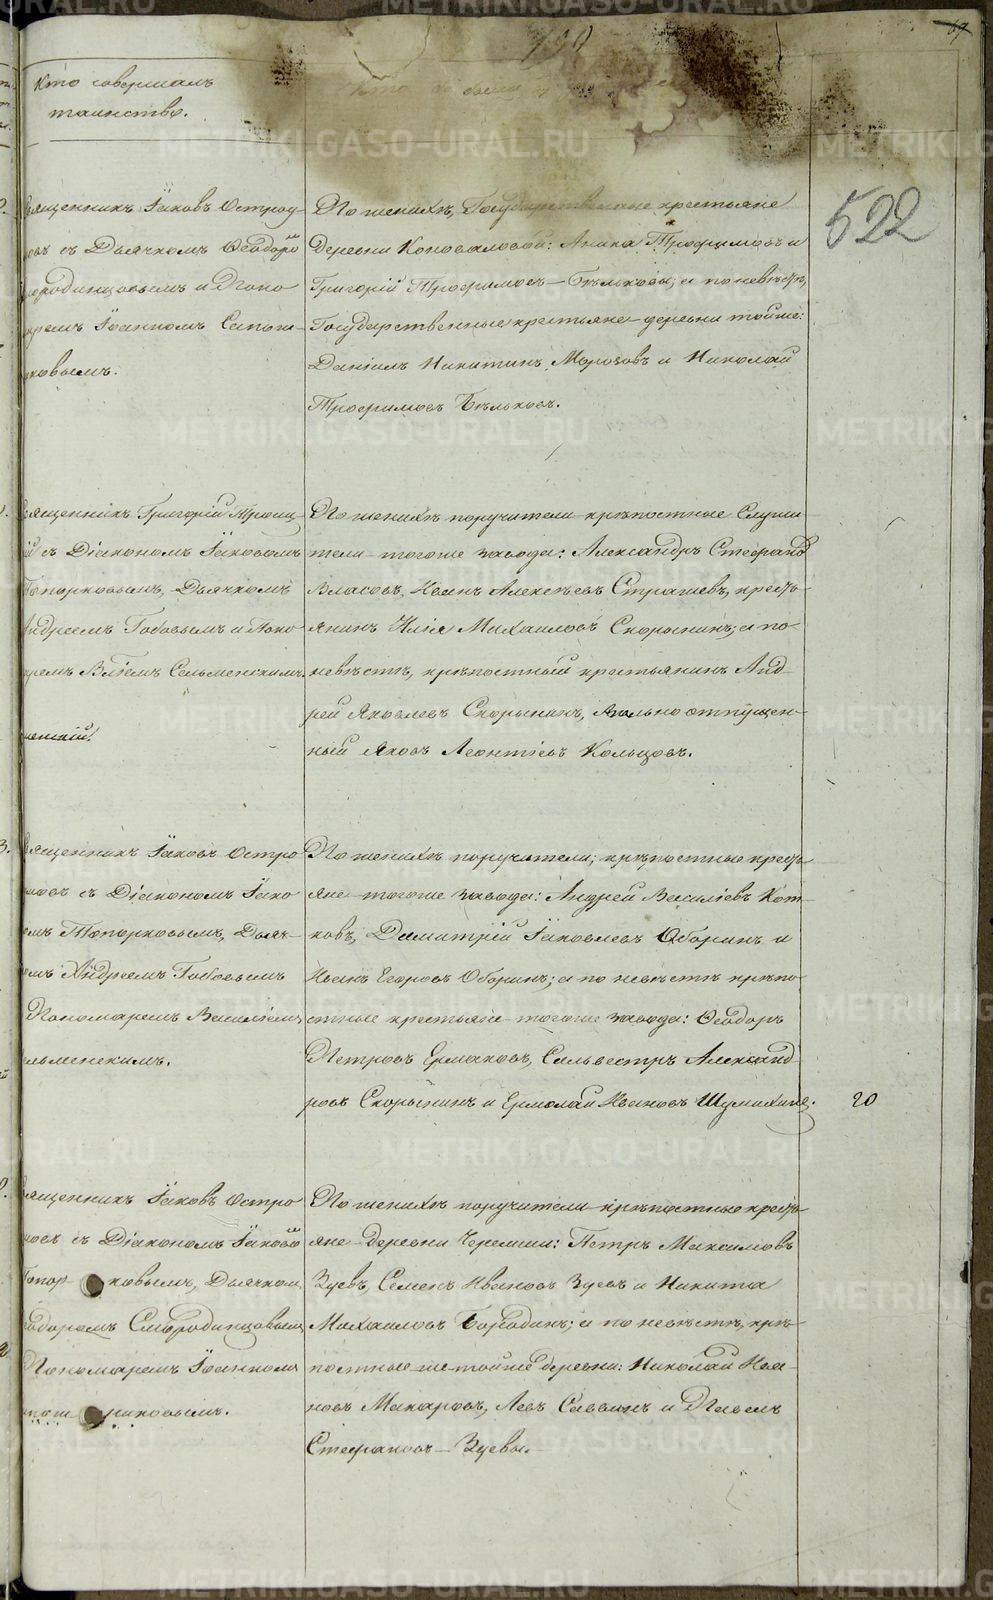 69
522
Кто совершалъ
таинство.
Священникъ Іаковъ Остроу-
мовъ съ Дьячкомъ Ѳеодоро
Смородинцовымъ и Поно
маремъ Іоанномъ Сапож-
никовымъ.
По женихѣ, Государственные крестьяне
деревни Коноваловой: Аника Трофимовъ и
Григорій Трофимовъ Бѣльковы; а по невѣстѣ,
Государственные крестьяне деревни тойже:
Даніилъ Никитинъ Морозовъ и Николай
Трофимовъ Бѣльковъ.
Священникъ Григорій Троиц-
ій съ Діакономъ Іаковымъ
Топорковымъ, Дьячкомъ
Андреемъ Гобовымъ и Поно
маремъ Сельменскимъ.
По женихѣ поручители крѣпостные Служи
тели тогоже завода: Александръ Стефано
Власовъ, Иванъ Алексѣевъ Страшевъ, кресть
янинъ Илія Михаиловъ Скорынинъ; а по
невѣстѣ, крѣпостный крестьянинъ Анд-
рей Яковлевъ Скорынинъ, вольно отпущен-
ный Яковъ Леонтіевъ Кольцовъ.
Священникъ Іаковъ Остро
умовъ съ Діакономъ Іако
омъ Топорковымъ, Дьяч-
омъ Андреемъ Гобовымъ
Пономаремъ Василіемъ
ельменскимъ.
По женихѣ поручители; крѣпостные кресть
яне тогоже завода: Андрей Василіевъ Кот-
ковъ, Димитрій Іаковлевъ Оборинъ и
Иванъ Егоровъ Оборинъ; а по невѣстѣ крѣпо
стные крестьяне тогоже завода: Ѳеодоръ
Петровъ Ермаковъ, Сильвестръ Александ-
ровъ Скорынинъ и Ермолай Ивановъ Шумихинъ.
20
Священникъ Іаковъ Остро
мовъ съ Діакономъ Іаковы
Топорковымъ, Дьячком
Ѳеодоромъ Смородинцовымъ
Пономаремъ Іоанномъ
апожниковымъ.
По женихѣ поручители крѣпостные кресть
яне деревни Черемши: Петръ Максимовъ
Зуевъ, Семенъ Ивановъ Зуевъ и Никита
Михаиловъ Бородинъ; а по невѣстѣ, крѣ
постные же тойже деревни: Николай Ива-
новъ Макаровъ, Левъ Саввинъ и Павелъ
Стефановъ Зуевы.
METRIKI.GASO-URAL.RU